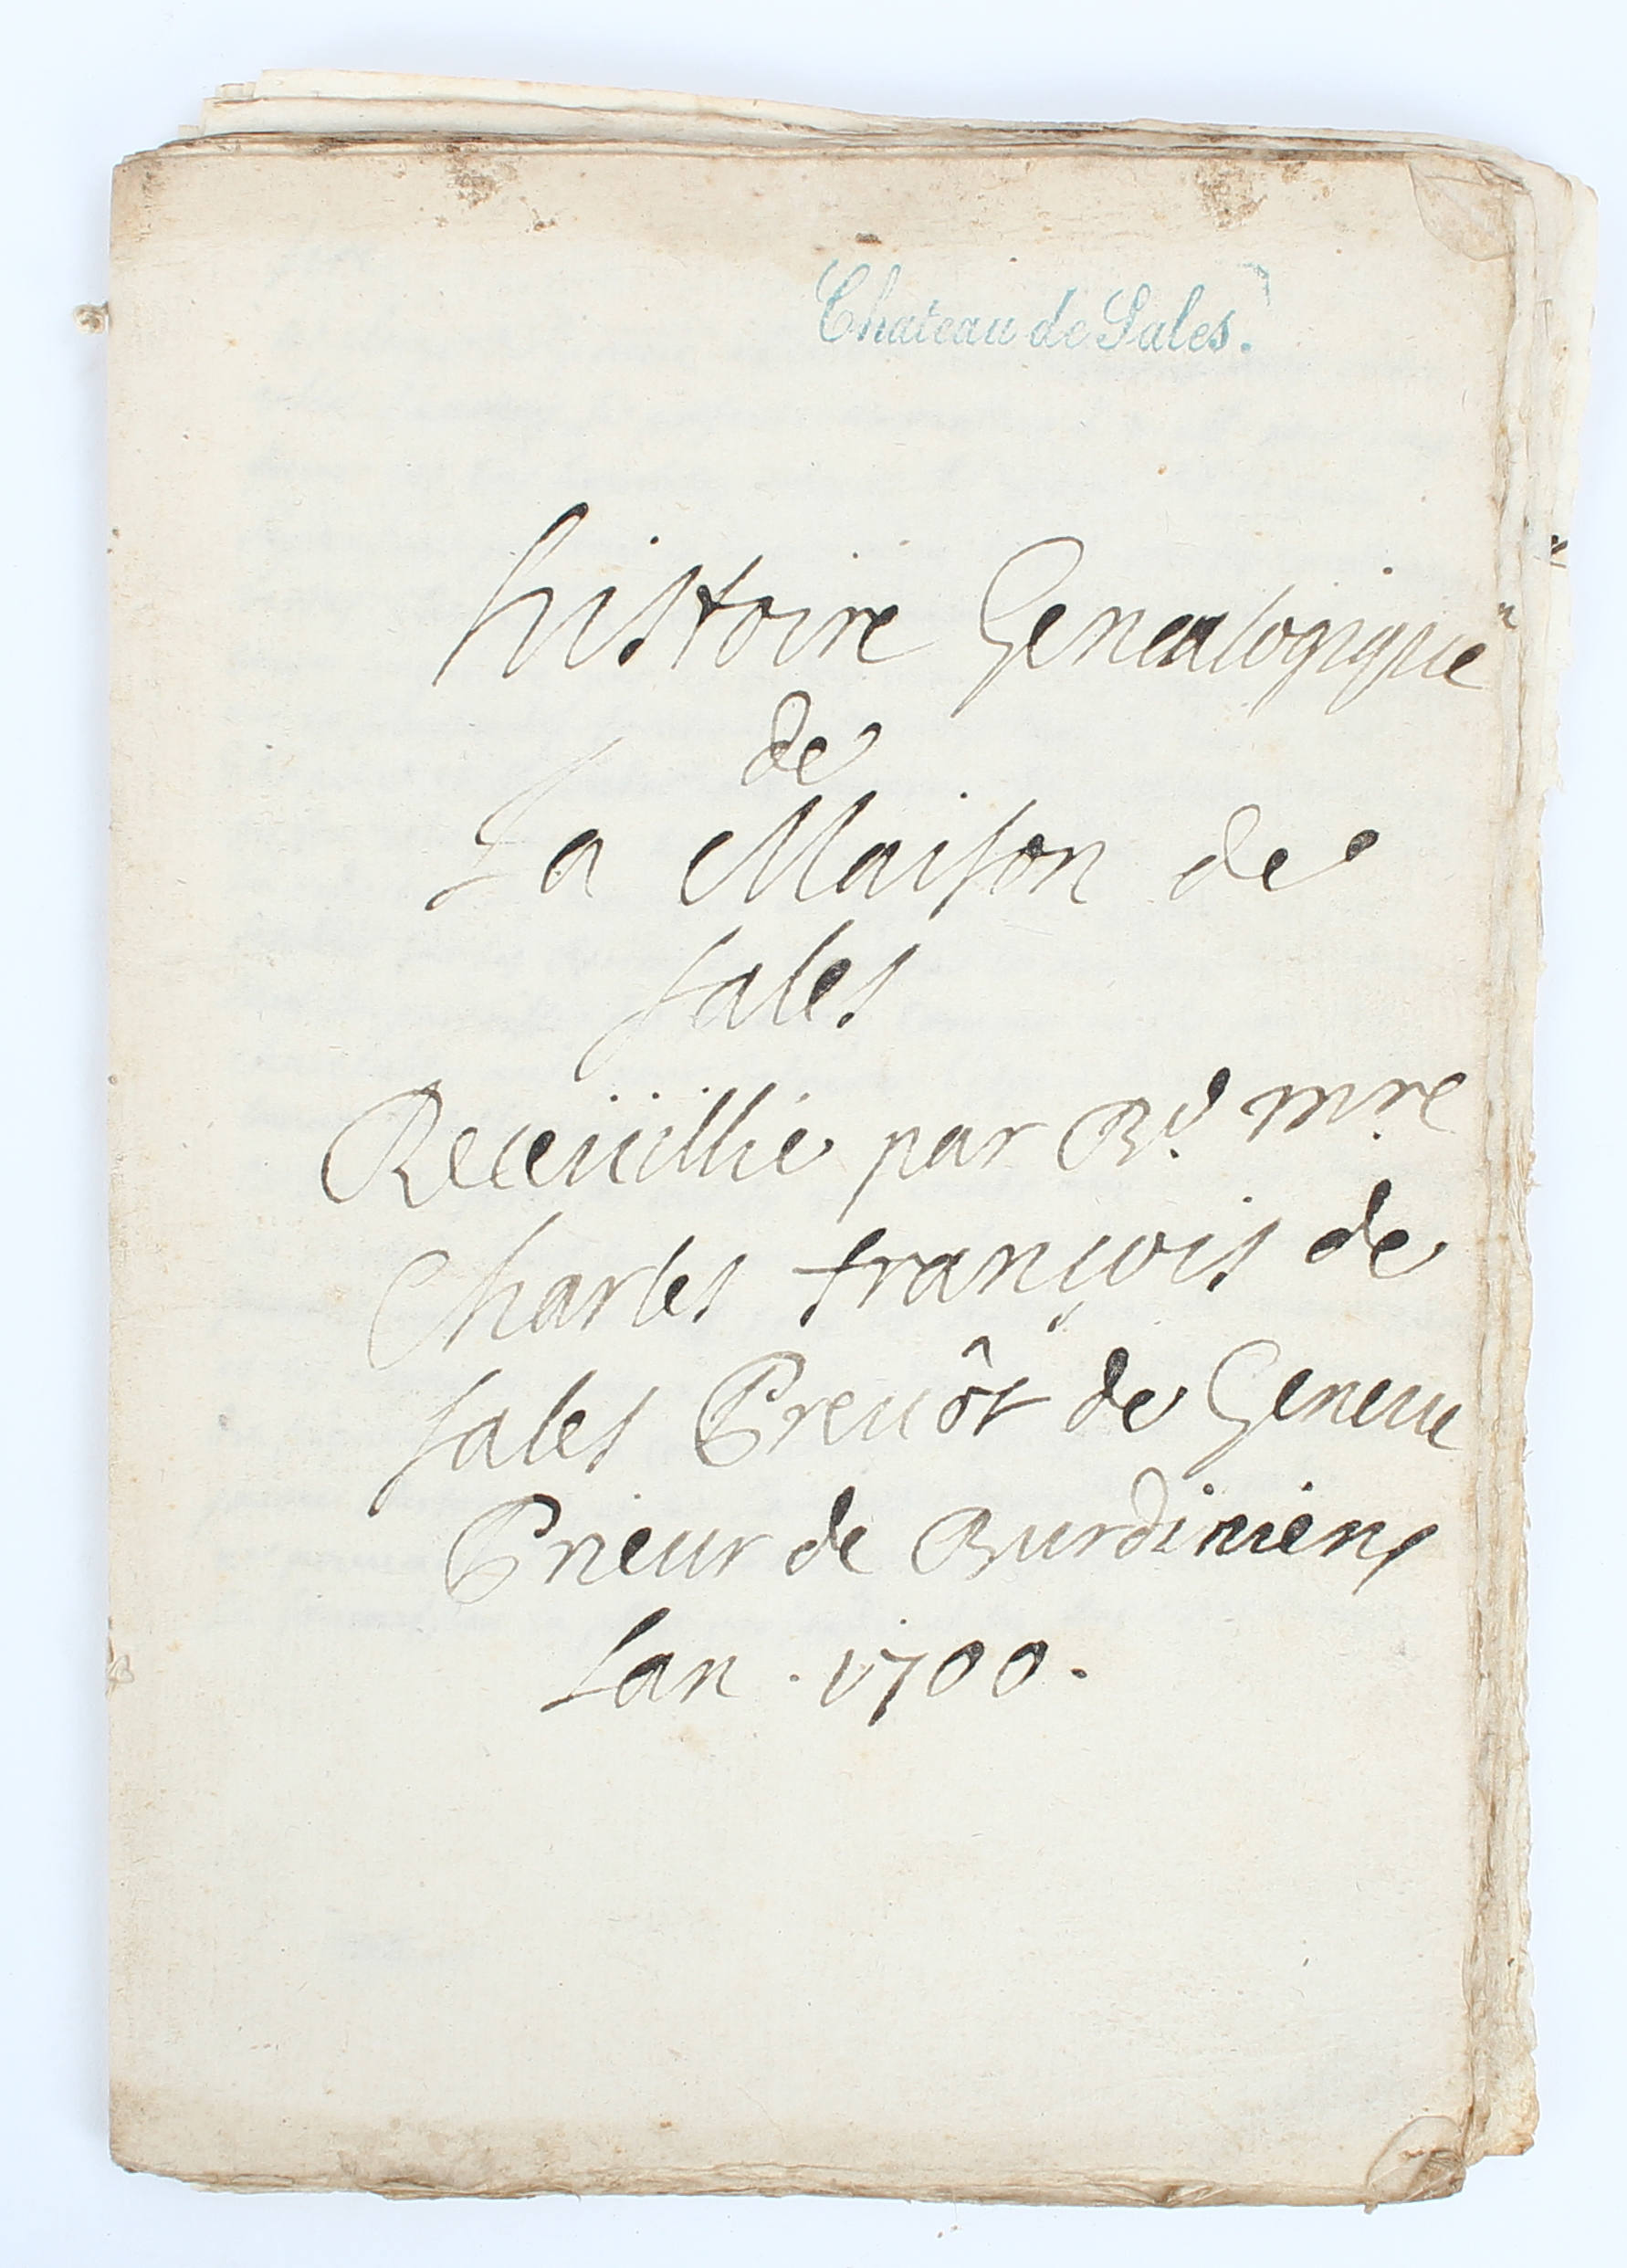 Chateau de Sales.
histoire Genealogique
de
La Maison de
sales
Receüillie par Rd. mre
Charles françois de
sales Preuôt de Geneue
Prieur de Burdiniens
Lan . 1700 .